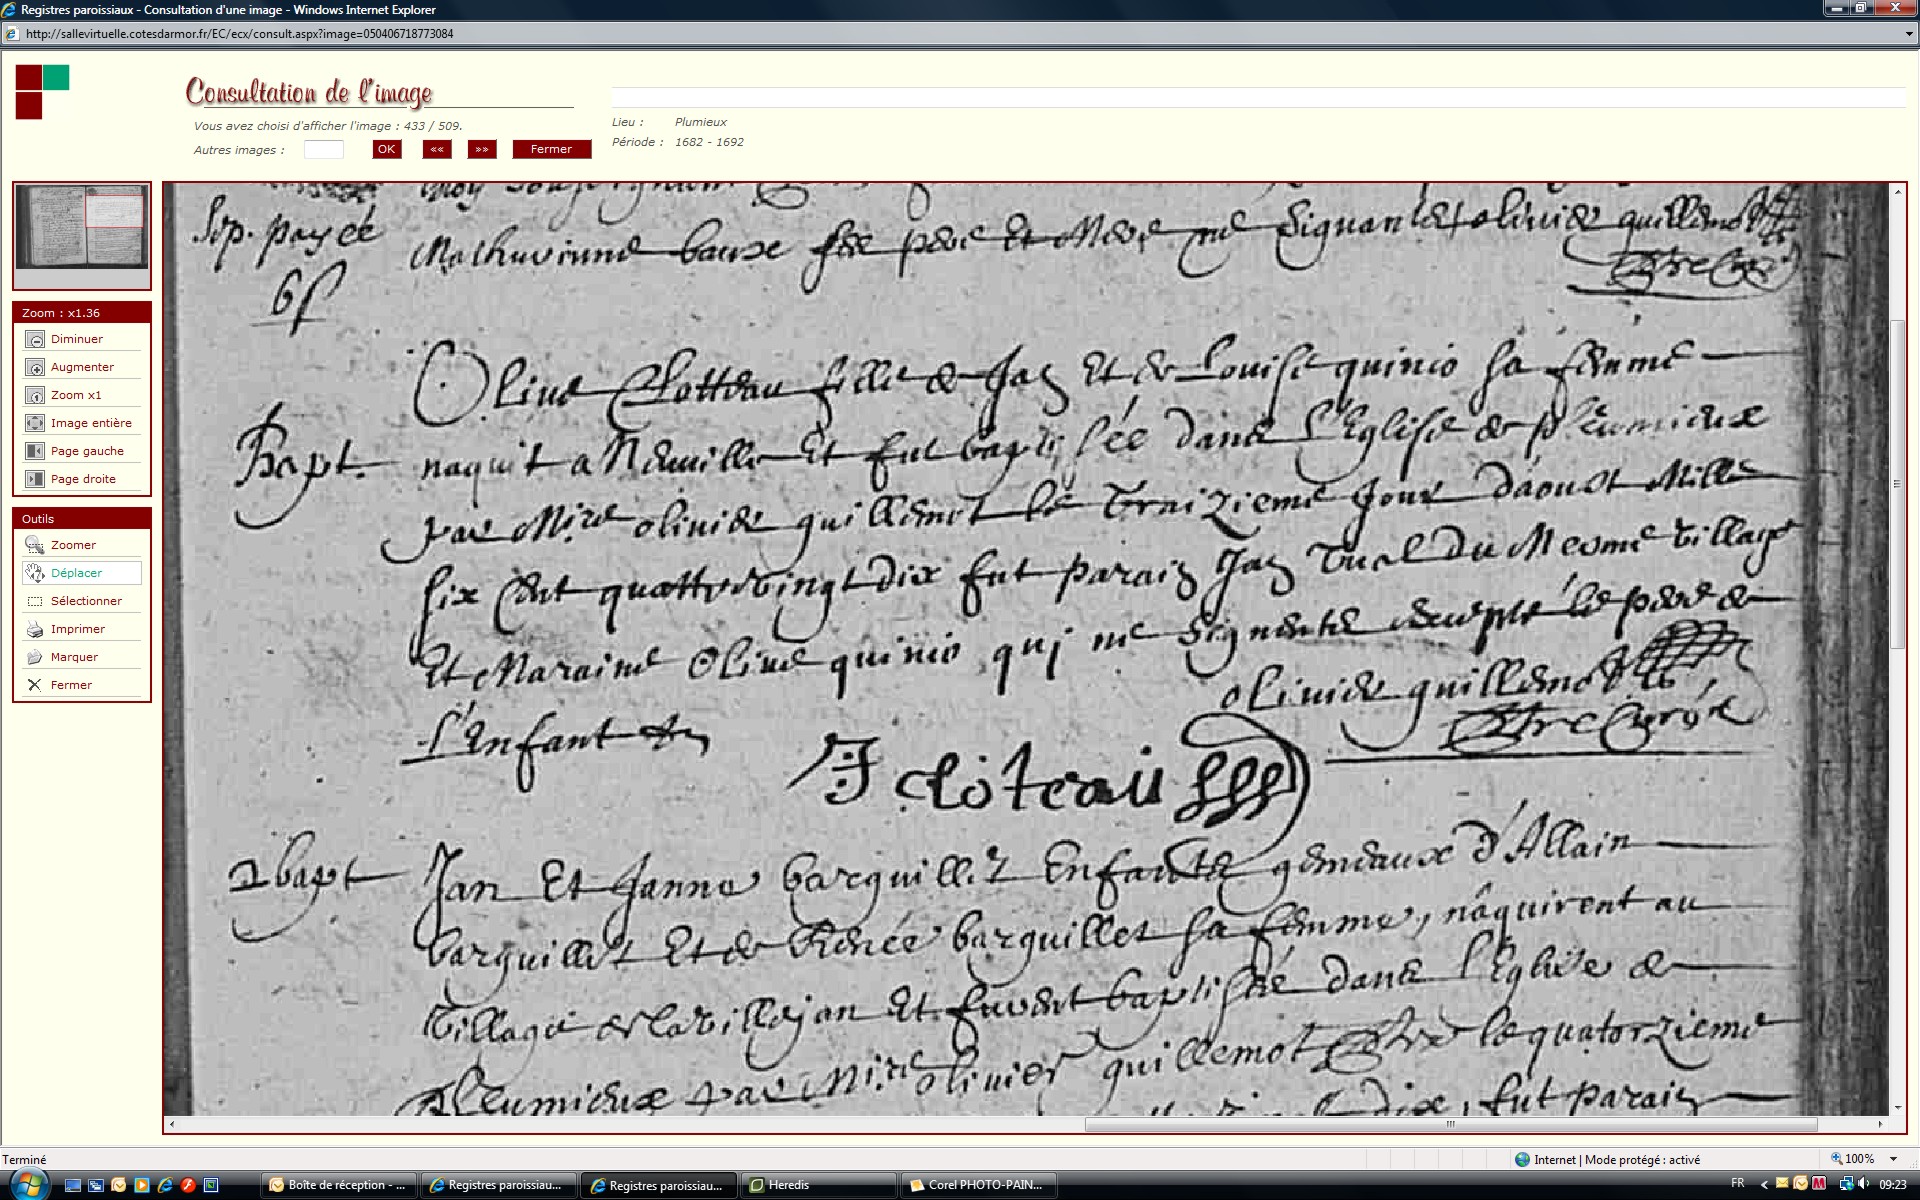 Registres paroissiaux - Consultation d'une image - Windows Internet Explorer
http://sallevirtuelle.cotesdarmor.fr/EC/ecx/consult.aspx?image=050406718773084
Consultation de l'image
Vous avez choisi d'afficher l'image : 433 / 509.
Autres images :
OK
««
»»
Fermer
Lieu : Plumieux
Période : 1682 - 1692
Zoom : x1.36
Diminuer
Augmenter
Zoom x1
Image entière
Page gauche
Page droite
Outils
Zoomer
Déplacer
Sélectionner
Imprimer
Marquer
Fermer
Sep. payée
6 s
Mathurinne bauxe ses pere et Mere ne Signant et olivier quillemot
Bapt.
Olive Clotteau fille de Jan Et de Louise quinio sa femme
naquit a Et fut baptisée dans L'Eglise de pleumieux
par Mire olivier quillemot le Treizieme Jour d'aoust Mille
six Cent quattre vingt dix fut parain Jan Tual du Mesme village
Et Maraine Olive quinio qui ne signent excepté le pere de
L'Enfant
olivier quillemot
J cloteau
2 bapt
Jan Et Janne barquillet Enfants gemeaux d'Allain
barquillet Et de Renée barquillet sa femme, nâquirent au
village de la ville jan Et furent baptisés dans l'Eglise de
pleumieux par Mire olivier quillemot ptre le quatorzieme
dix, fut parain
Terminé
Internet | Mode protégé : activé
100%
Boîte de réception - ...
Registres paroissiau...
Registres paroissiau...
Heredis
Corel PHOTO-PAIN...
FR
09:23